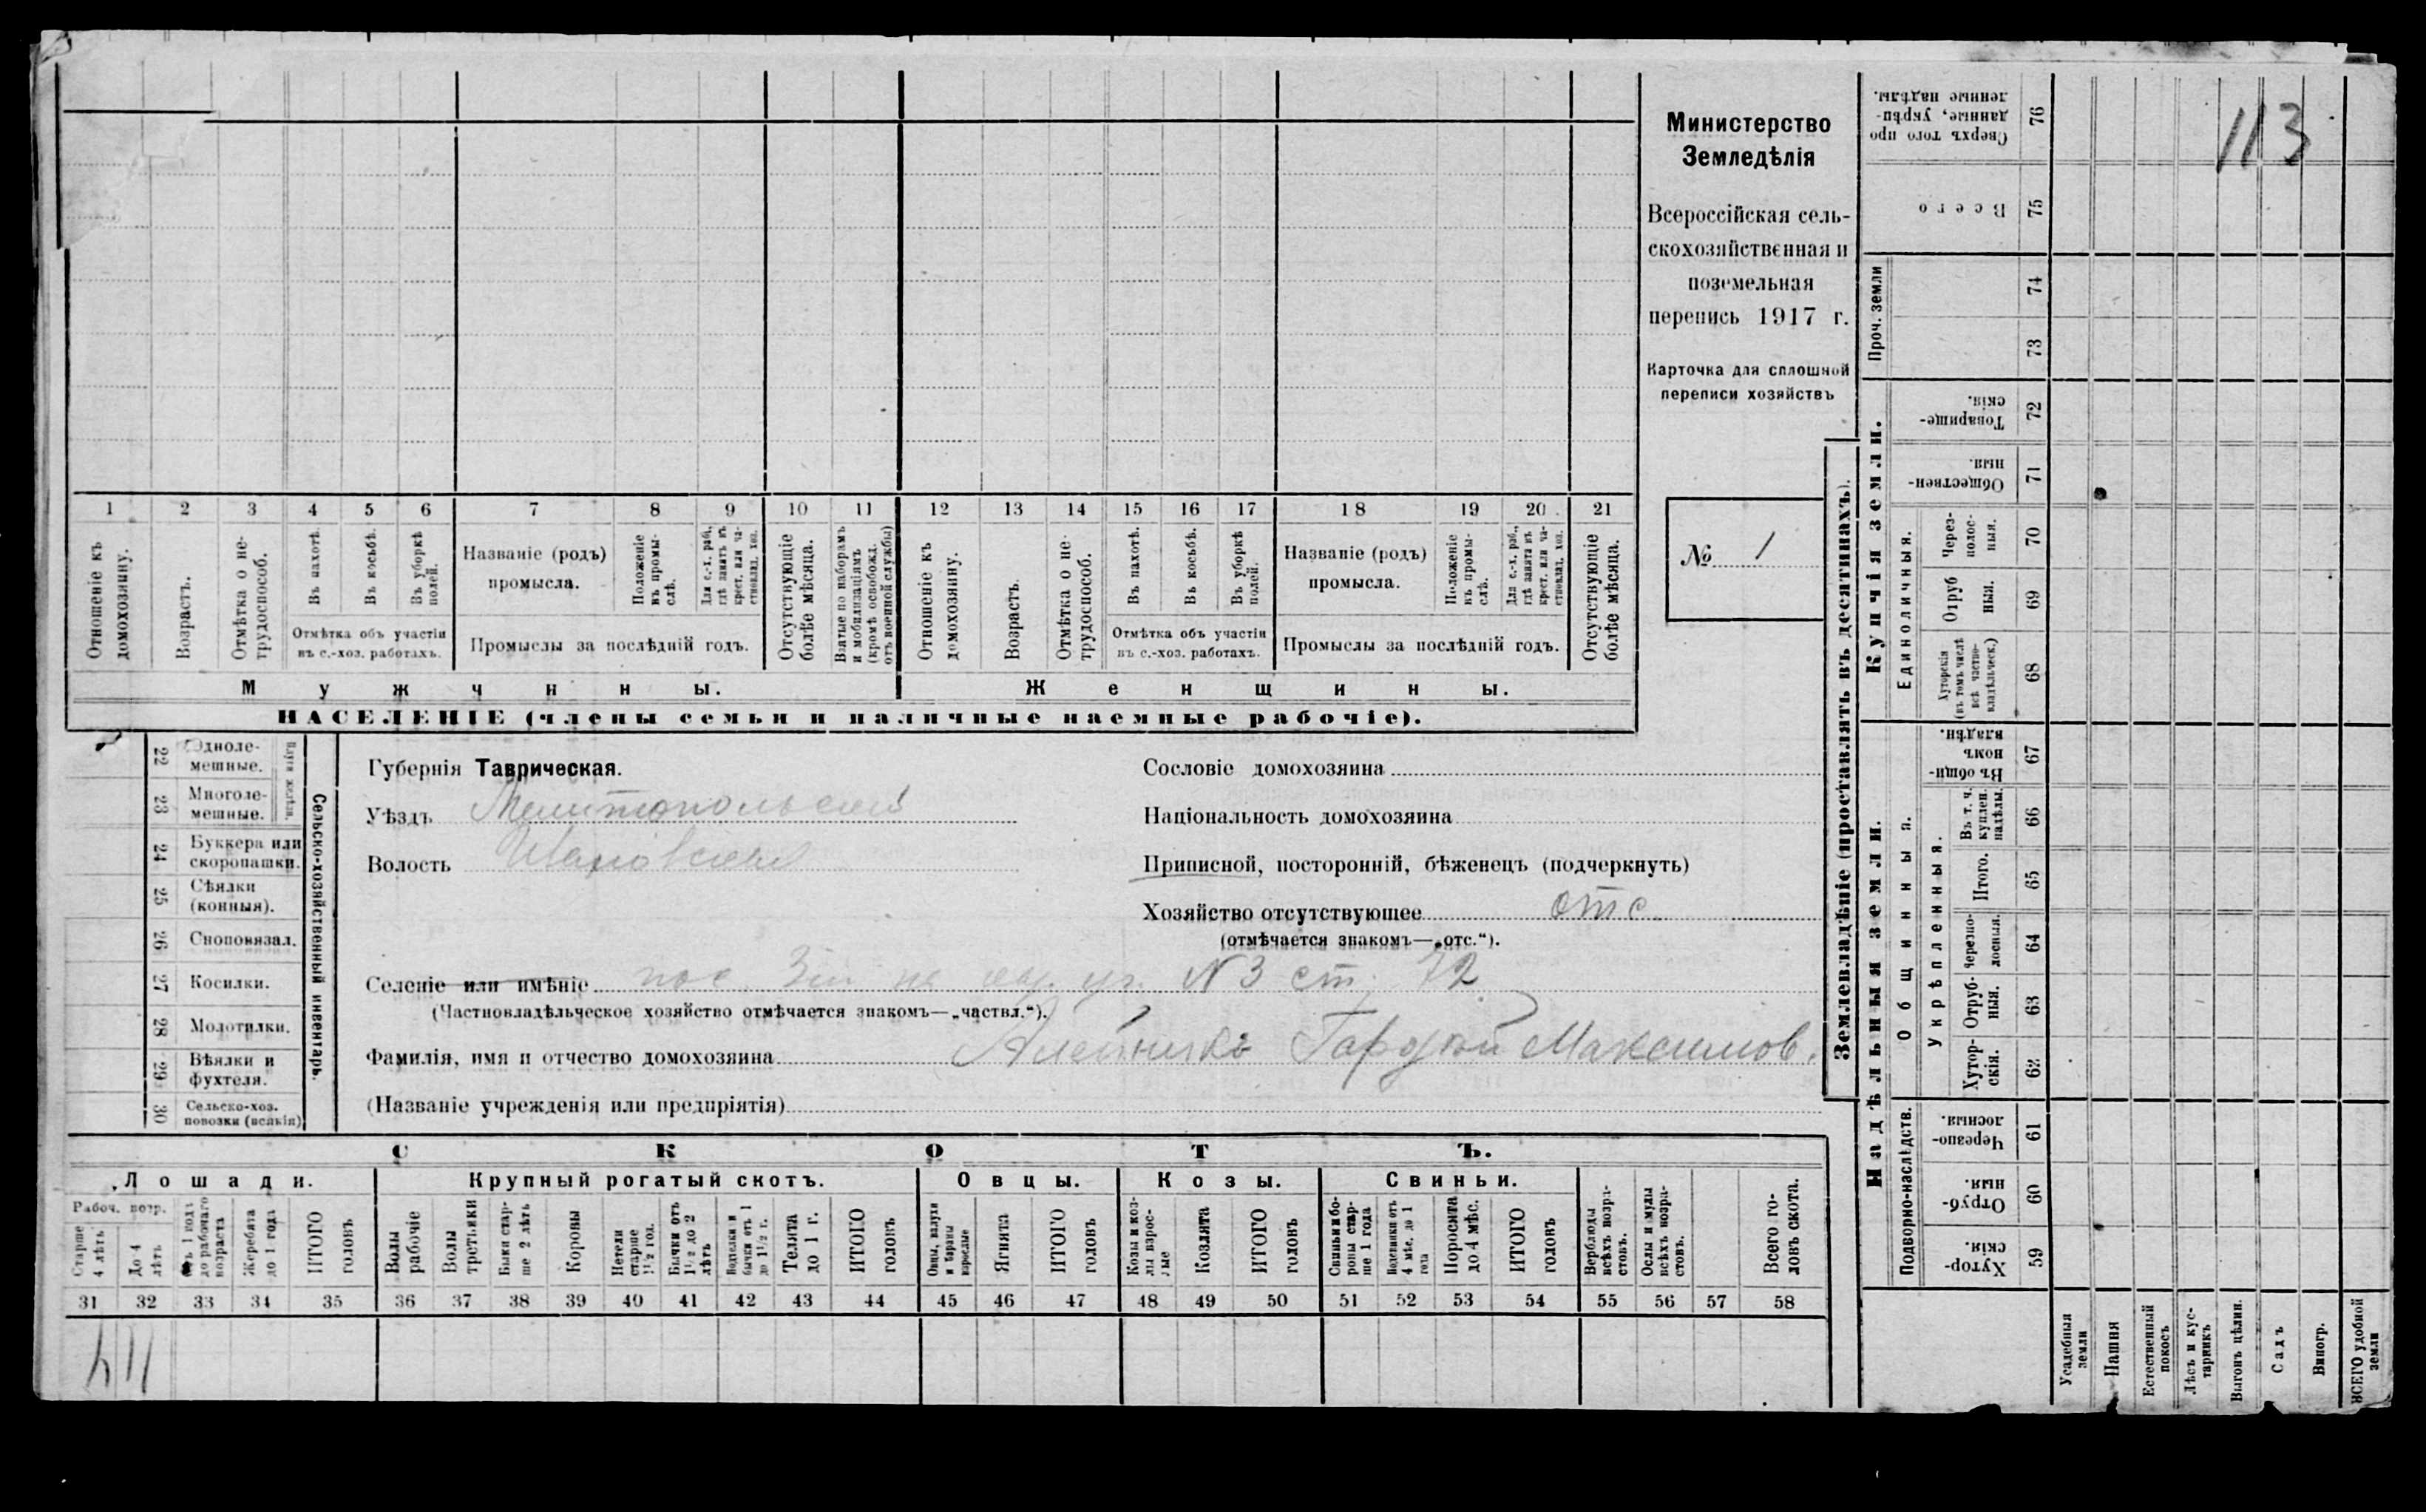 113
Министерство
Земледѣлія
Всероссійская сель-
скохозяйственная и
поземельная
перепись 1917 г.
Карточка для сплошной
переписи хозяйствъ
№ 1
1 2 3 4 5 6 7 8 9 10 11 12 13 14 15 16 17 18 19 20 21
Отношеніе къ
домохозяину.
Возрастъ.
Отмѣтка о не-
трудоспособ.
Въ пахотѣ.
Въ косьбѣ.
Въ уборкѣ
полей.
Отмѣтка объ участіи
въ с.-хоз. работахъ.
Названіе (родъ)
промысла.
Положеніе
въ промы-
слѣ.
Для с.-х. раб.,
гдѣ занятъ въ
крест. или ча-
стновлад. хоз.
Промыслы за послѣдній годъ.
Отсутствующіе
болѣе мѣсяца.
Взятые по наборамъ
и мобилизаціямъ
(кромѣ освобожд.
отъ военной службы)
Отношеніе къ
домохозяину.
Возрастъ.
Отмѣтка о не-
трудоспособ.
Въ пахотѣ.
Въ косьбѣ.
Въ уборкѣ
полей.
Отмѣтка объ участіи
въ с.-хоз. работахъ.
Названіе (родъ)
промысла.
Положеніе
въ промы-
слѣ.
Для с.-х. раб.,
гдѣ занята въ
крест. или ча-
стновлад. хоз.
Промыслы за послѣдній годъ.
Отсутствующіе
болѣе мѣсяца.
Мужчины.
Женщины.
НАСЕЛЕНІЕ (члены семьи и наличные наемные рабочіе).
22 Одноле-
мешные.
23 Многоле-
мешные.
24 Буккера или
скоропашки.
25 Сѣялки
(конныя).
26 Сноповязал.
27 Косилки.
28 Молотилки.
29 Вѣялки и
фухтеля.
30 Сельско-хоз.
повозки (всякія)
Сельско-хозяйственный инвентарь.
Губернія Таврическая.
Уѣздъ Мелитопольскій
Волость Ивановская
Сословіе домохозяина
Національность домохозяина
Приписной, посторонній, бѣженецъ (подчеркнуть)
Хозяйство отсутствующее отс
(отмѣчается знакомъ—„отс.“).
Селеніе или имѣніе пос. N 3 ст. 72
(Частновладѣльческое хозяйство отмѣчается знакомъ—„частвл.“).
Фамилія, имя и отчество домохозяина Алейникъ Гордѣй Максимов.
(Названіе учрежденія или предпріятія)
СКОТЪ.
Лошади. Крупный рогатый скотъ. Овцы. Козы. Свиньи.
Рабоч. возр.
Старше
4 лѣтъ
До 4
лѣтъ
Отъ 1 года
до рабочаго
возраста
Жеребята
до 1 года
ИТОГО
головъ
Волы
рабочіе
Волы
третьяки
Быки стар-
ше 2 лѣтъ
Коровы
Нетели
старше
1½ год.
Бычки отъ
1½ до 2
лѣтъ
Водтелки и
бычки отъ 1
до 1½ г.
Телята
до 1 г.
ИТОГО
головъ
Овцы, валухи
и бараны
взрослые
Ягнята
ИТОГО
головъ
Козы и коз-
лы взрос-
лые
Козлята
ИТОГО
головъ
Свиньи и бо-
ровы стар-
ше 1 года
Подсвинки отъ
4 мѣс. до 1
года
Поросята
до 4 мѣс.
ИТОГО
головъ
Верблюды
всѣхъ возра-
стовъ.
Ослы и мулы
всѣхъ возра-
стовъ.
Всего го-
ловъ скота.
31 32 33 34 35 36 37 38 39 40 41 42 43 44 45 46 47 48 49 50 51 52 53 54 55 56 57 58
114
Землевладѣніе (проставлять въ десятинахъ).
Сверхъ того про
данные, укрѣп-
ленные надѣлы.
76
Всего
75
Проч. земли
74
73
Купчія земли.
Товарище-
скія.
72
Обществен-
ныя.
71
Единоличныя.
Через-
полос-
ныя.
70
Отруб
ныя.
69
Хуторскія
(въ томъ числѣ
всѣ частно-
владѣльческ.)
68
Надѣльныя земли.
Общинныя.
Въ общин-
номъ
владѣн.
67
Укрѣпленныя.
Въ т. ч.
куплен.
надѣлы.
66
Итого.
65
Черезпо-
лосныя.
64
Отруб-
ныя.
63
Хутор-
скія.
62
Подворно-наслѣдств.
Черезпо-
лосныя.
61
Отруб-
ныя.
60
Хутор-
скія.
59
Усадебныя
земли
Пашня
Естественный
покосъ
Лѣсъ и кус-
тарникъ
Выгонъ цѣлин.
Садъ
Виногр.
ВСЕГО удобной
земли